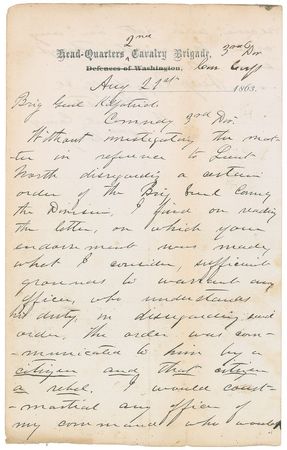 2nd
Head-Quarters Cavalry Brigade, 3rd Div
Defences of Washington, Cav Corps
Aug 21st 1863.
Brig Genl Kilpatrick
Commdg 3rd Div.
Without investigating the mat-
ter in reference to Lieut
Worth disregarding a certain
order of the Brig Genl Comdg
the Division, I find on reading
the letter, on which your
endorsement was made,
what I consider, sufficient
grounds to warrant any
officer, who understands
his duty, in disregarding said
order. The order was com-
-municated to him by a
citizen and that citizen
a rebel. I would court-
-martial any officer of
my command who would